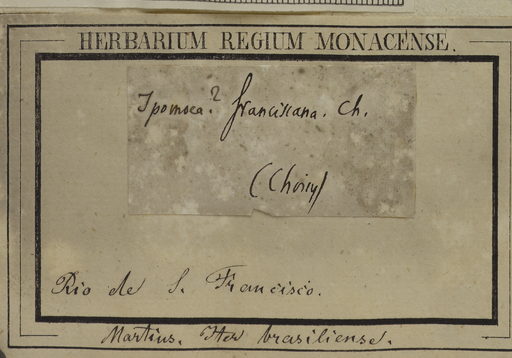 HERBARIUM REGIUM MONACENSE.
Ipomoea? franciscana. Ch.
(Choisy)
Rio de S. Francisco.
Martius. Iter brasiliense.